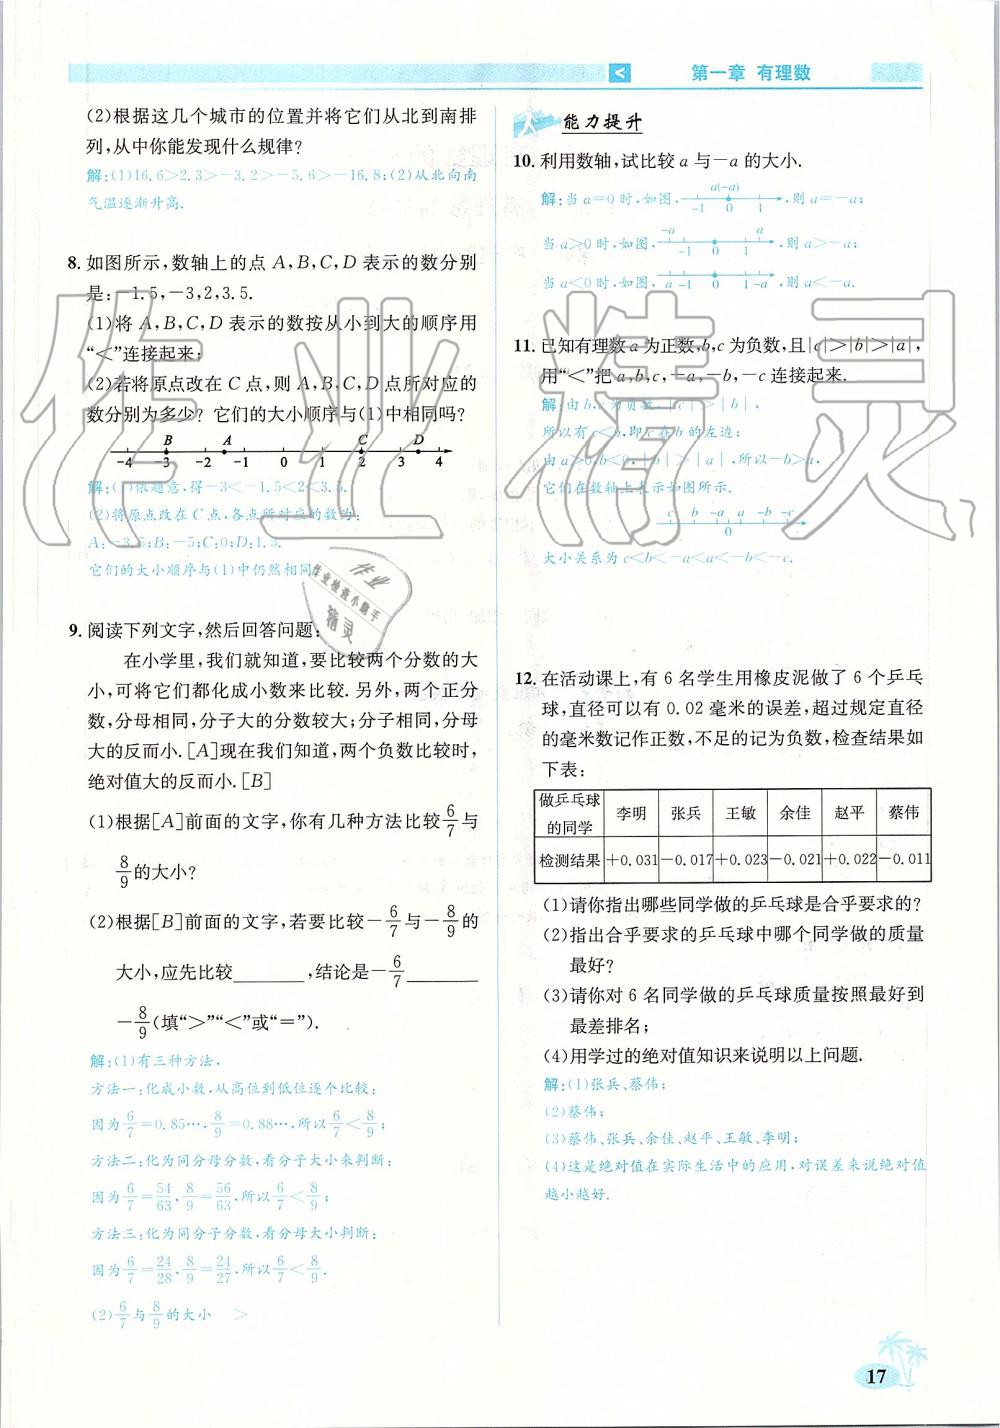 第一章 有理数
(2)根据这几个城市的位置并将它们从北到南排
列,从中你能发现什么规律?
解:(1)16.6>2.3>-3.2>-5.6>-16.8;(2)从北向南
气温逐渐升高.
8. 如图所示,数轴上的点 A,B,C,D 表示的数分别
是:-1.5,-3,2,3.5.
(1)将 A,B,C,D 表示的数按从小到大的顺序用
“<”连接起来;
(2)若将原点改在 C 点,则 A,B,C,D 点所对应的
数分别为多少? 它们的大小顺序与(1)中相同吗?
B A C D
-4 -3 -2 -1 0 1 2 3 4
解:(1)依题意,得-3<-1.5<2<3.5.
(2)将原点改在 C 点,各点所对应的数为:
A:-3.5;B:-5;C:0;D:1.5.
它们的大小顺序与(1)中仍然相同.
9. 阅读下列文字,然后回答问题:
在小学里,我们就知道,要比较两个分数的大
小,可将它们都化成小数来比较. 另外,两个正分
数,分母相同,分子大的分数较大;分子相同,分母
大的反而小.[A]现在我们知道,两个负数比较时,
绝对值大的反而小.[B]
(1)根据[A]前面的文字,你有几种方法比较6/7与
8/9的大小?
(2)根据[B]前面的文字,若要比较-6/7与-8/9的
大小,应先比较________,结论是-6/7________
-8/9(填“>”“<”或“=”).
解:(1)有三种方法.
方法一:化成小数,从高位到低位逐个比较;
因为6/7=0.85…,8/9=0.88…,所以6/7<8/9.
方法二:化为同分母分数,看分子大小来判断;
因为6/7=54/63,8/9=56/63,所以6/7<8/9;
方法三:化为同分子分数,看分母大小判断;
因为6/7=24/28,8/9=24/27,所以6/7<8/9.
(2)6/7与8/9的大小 >
能力提升
10. 利用数轴,试比较 a 与-a 的大小.
解:当 a=0 时,如图, a(-a) -1 0 1 ,则 a=-a;
当 a>0 时,如图, -a a -1 0 1 ,则 a>-a;
当 a<0 时,如图, a -1 0 1 -a ,则 a<-a.
11. 已知有理数 a 为正数,b,c 为负数,且|c|>|b|>|a|,
用“<”把 a,b,c,-a,-b,-c 连接起来.
解:由 b,c 为负数,|c|>|b|,
所以有 c<b,即 c 在 b 的左边;
由 a>0,b<0,|b|>|a|,所以-b>a,
它们在数轴上表示如图所示.
c b -a a -b -c
0
大小关系为 c<b<-a<a<-b<-c.
12. 在活动课上,有 6 名学生用橡皮泥做了 6 个乒乓
球,直径可以有 0.02 毫米的误差,超过规定直径
的毫米数记作正数,不足的记为负数,检查结果如
下表:
做乒乓球的同学 李明 张兵 王敏 余佳 赵平 蔡伟
检测结果 +0.031 -0.017 +0.023 -0.021 +0.022 -0.011
(1)请你指出哪些同学做的乒乓球是合乎要求的?
(2)指出合乎要求的乒乓球中哪个同学做的质量
最好?
(3)请你对 6 名同学做的乒乓球质量按照最好到
最差排名;
(4)用学过的绝对值知识来说明以上问题.
解:(1)张兵、蔡伟;
(2)蔡伟;
(3)蔡伟、张兵、余佳、赵平、王敏、李明;
(4)这是绝对值在实际生活中的应用,对误差来说绝对值
越小越好.
17
作业精灵
作业
作业检查小助手
精灵